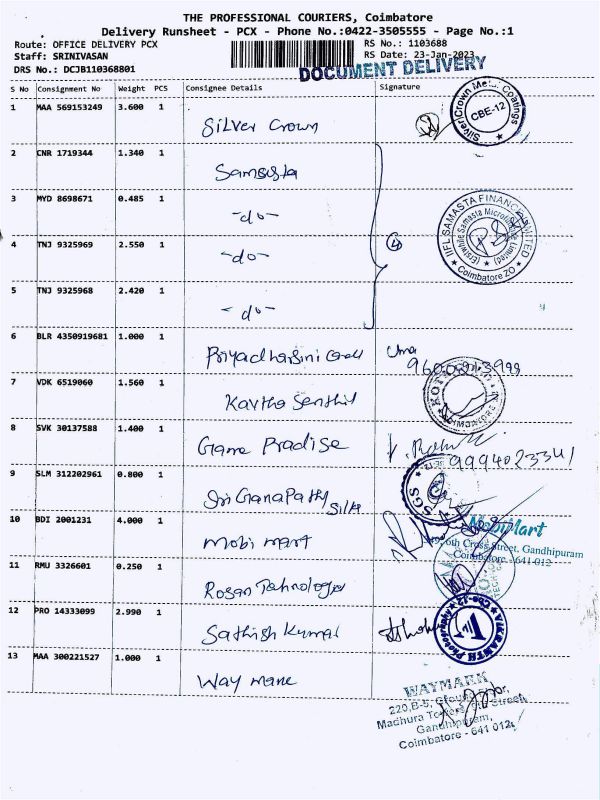 THE PROFESSIONAL COURIERS, Coimbatore
Delivery Runsheet - PCX - Phone No.:0422-3505555 - Page No.:1
Route: OFFICE DELIVERY PCX RS No.: 1103688
Staff: SRINIVASAN RS Date: 23-Jan-2023
DRS No.: DCJB110368801 DOCUMENT DELIVERY
S No Consignment No Weight PCS Consignee Details Signature
1 MAA 569153249 3.600 1 Silver Crown
Silver Crown Metal Coatings CBE-12
2 CNR 1719344 1.340 1 Samasta
3 MYD 8698671 0.485 1 -do-
4 TNJ 9325969 2.550 1 -do- 4
IIFL SAMASTA FINANCE LIMITED
(Erstwhile Samasta Microfinance Limited)
Coimbatore ZO
5 TNJ 9325968 2.420 1 -do-
6 BLR 4350919681 1.000 1 Priyadharsini Uma
7 VDK 6519060 1.560 1 Kavtha Senthil
8 SVK 30137588 1.400 1 Game Pradise
9994023341
9 SLM 312202961 0.800 1 Sri Ganapathy Silks
SGS
10 BDI 2001231 4.000 1 Mobi mart
MobiMart
6th Cross Street, Gandhipuram
Coimbatore - 641 012
11 RMU 3326601 0.250 1 Rosan Technologies
12 PRO 14333099 2.990 1 Sathish Kumar
VIKRANTH Photography CBE-12
13 MAA 300221527 1.000 1 Way mane
WAYMARK
220,B-5, Ground Floor,
Madhura Towers, Street,
Gandhipuram,
Coimbatore - 641 012.